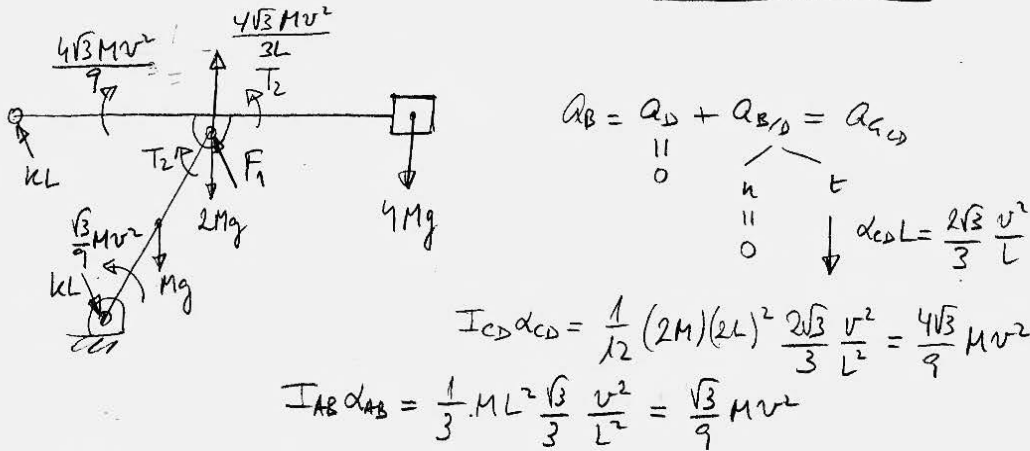 4√3 Mv² / 9
4√3 Mv² / 3L
T₂
KL
T₂
F₁
2Mg
4Mg
√3/9 Mv²
KL
Mg
a_B = a_D + a_B/D = a_G_CD
॥ 0
n t
॥ 0
α_CD L = 2√3/3 v²/L
I_CD α_CD = 1/12 (2M)(2L)² 2√3/3 v²/L² = 4√3/9 Mv²
I_AB α_AB = 1/3 . ML² √3/3 v²/L² = √3/9 Mv²